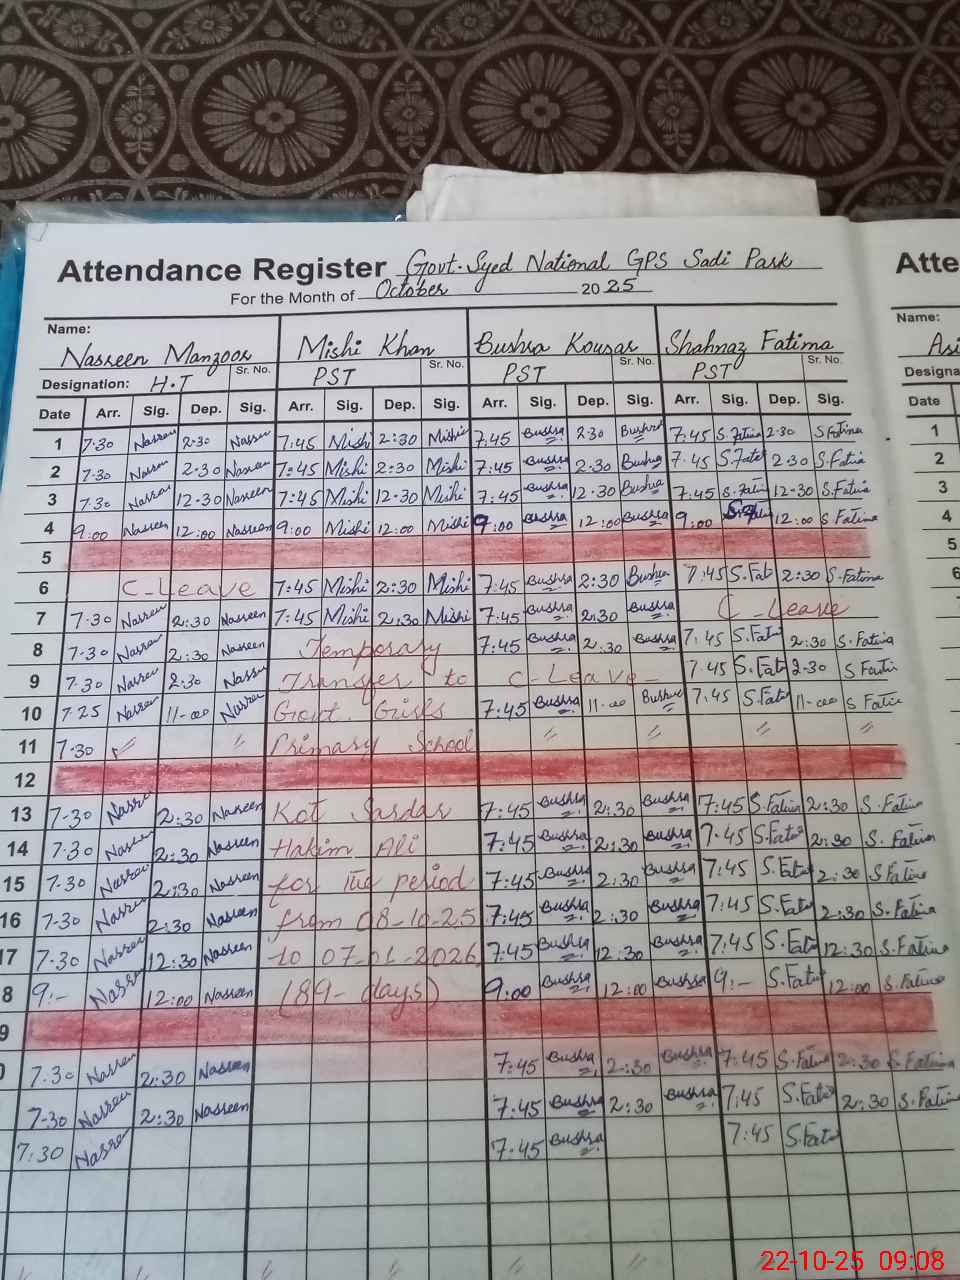 Attendance Register Govt. Syed National GPS Sadi Park
For the Month of October 2025
Name: Nasreen Manzoor Mishi Khan Bushra Kousar Shahnaz Fatima
Designation: H.T Sr. No. PST Sr. No. PST Sr. No. PST Sr. No.
Date Arr. Sig. Dep. Sig. Arr. Sig. Dep. Sig. Arr. Sig. Dep. Sig. Arr. Sig. Dep. Sig.
1 7-30 Nasreen 2-30 Nasreen 7:45 Mishi 2:30 Mishi 7:45 Bushra 2:30 Bushra 7:45 S.Fatima 2-30 S Fatima
2 7-30 Nasreen 2-30 Nasreen 7:45 Mishi 2:30 Mishi 7:45 Bushra 2:30 Bushra 7:45 S.Fati 2:30 S.Fatima
3 7-30 Nasreen 12-30 Nasreen 7:45 Mishi 12-30 Mishi 7:45 Bushra 12-30 Bushra 7:45 S.Fati 12-30 S.Fatima
4 9:00 Nasreen 12:00 Nasreen 9:00 Mishi 12:00 Mishi 9:00 Bushra 12:00 Bushra 9:00 12:00 S Fatima
5
6 C-Leave 7:45 Mishi 2:30 Mishi 7:45 Bushra 2:30 Bushra 7:45 S.Fati 2:30 S.Fatima
7 7-30 Nasreen 2:30 Nasreen 7:45 Mishi 2:30 Mishi 7:45 Bushra 2:30 Bushra C-Leave
8 7-30 Nasreen 2:30 Nasreen Temporary 7:45 Bushra 2:30 Bushra 7:45 S.Fati 2:30 S.Fatima
9 7-30 Nasreen 2:30 Nasreen Transfer to C-Leave- 7:45 S.Fati 2-30 S Fatima
10 7-25 Nasreen 11-00 Nasreen Govt. Girls 7:45 Bushra 11-00 Bushra 7:45 S.Fati 11-00 S Fatima
11 7-30 〃 Primary School 〃 〃 〃 〃
12
13 7-30 Nasreen 2:30 Nasreen Kot Sardar 7:45 Bushra 2:30 Bushra 7:45 S.Fatima 2:30 S.Fatima
14 7-30 Nasreen 2:30 Nasreen Hakim Ali 7:45 Bushra 2:30 Bushra 7:45 S.Fati 2:30 S.Fatima
15 7-30 Nasreen 2:30 Nasreen for the period 7:45 Bushra 2:30 Bushra 7:45 S.Fati 2:30 S Fatima
16 7-30 Nasreen 2:30 Nasreen from 08-10-25 7:45 Bushra 2:30 Bushra 7:45 S.Fati 2:30 S.Fatima
17 7-30 Nasreen 12:30 Nasreen to 07-01-2026 7:45 Bushra 12:30 Bushra 7:45 S.Fati 12:30 S.Fatima
8 9:- Nasreen 12:00 Nasreen (89-days) 9:00 Bushra 12:00 Bushra 9:- S.Fati 12:00 S.Fatima
9
0 7-30 Nasreen 2:30 Nasreen 7:45 Bushra 2:30 Bushra 7:45 S.Fatima 2:30 S.Fatima
7-30 Nasreen 2:30 Nasreen 7:45 Bushra 2:30 Bushra 7:45 S.Fati 2:30 S.Fatima
7:30 Nasreen 7:45 Bushra 7:45 S.Fati
Atte
Name:
Asi
Designa
Date
1
2
3
4
5
6
22-10-25 09:08